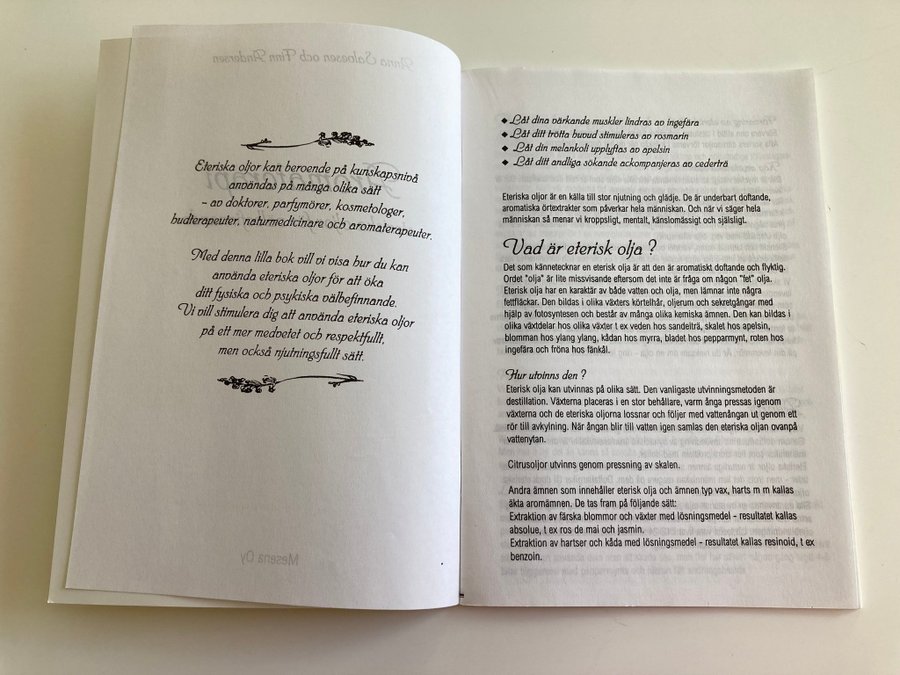 Eteriska oljor kan beroende på kunskapsnivå
användas på många olika sätt
- av doktorer, parfymörer, kosmetologer,
hudterapeuter, naturmedicinare och aromaterapeuter.
Med denna lilla bok vill vi visa hur du kan
använda eteriska oljor för att öka
ditt fysiska och psykiska välbefinnande.
Vi vill stimulera dig att använda eteriska oljor
på ett mer medvetet och respektfullt,
men också njutningsfullt sätt.
Anna Saloesen och Finn Andersen
Mesena Oy
◆ Låt dina värkande muskler lindras av ingefära
◆ Låt ditt trötta huvud stimuleras av rosmarin
◆ Låt din melankoli upplyftas av apelsin
◆ Låt ditt andliga sökande ackompanjeras av cederträ
Eteriska oljor är en källa till stor njutning och glädje. De är underbart doftande,
aromatiska örtextrakter som påverkar hela människan. Och när vi säger hela
människan så menar vi kroppsligt, mentalt, känslomässigt och själsligt.
Vad är eterisk olja ?
Det som kännetecknar en eterisk olja är att den är aromatiskt doftande och flyktig.
Ordet "olja" är lite missvisande eftersom det inte är fråga om någon "fet" olja.
Eterisk olja har en karaktär av både vatten och olja, men lämnar inte några
fettfläckar. Den bildas i olika växters körtelhår, oljerum och sekretgångar med
hjälp av fotosyntesen och består av många olika kemiska ämnen. Den kan bildas i
olika växtdelar hos olika växter t ex veden hos sandelträ, skalet hos apelsin,
blomman hos ylang ylang, kådan hos myrra, bladet hos pepparmynt, roten hos
ingefära och fröna hos fänkål.
Hur utvinns den ?
Eterisk olja kan utvinnas på olika sätt. Den vanligaste utvinningsmetoden är
destillation. Växterna placeras i en stor behållare, varm ånga pressas igenom
växterna och de eteriska oljorna lossnar och följer med vattenångan ut genom ett
rör till avkylning. När ångan blir till vatten igen samlas den eteriska oljan ovanpå
vattenytan.
Citrusoljor utvinns genom pressning av skalen.
Andra ämnen som innehåller eterisk olja och ämnen typ vax, harts m m kallas
äkta aromämnen. De tas fram på följande sätt:
Extraktion av färska blommor och växter med lösningsmedel - resultatet kallas
absolue, t ex ros de mai och jasmin.
Extraktion av hartser och kåda med lösningsmedel - resultatet kallas resinoid, t ex
benzoin.